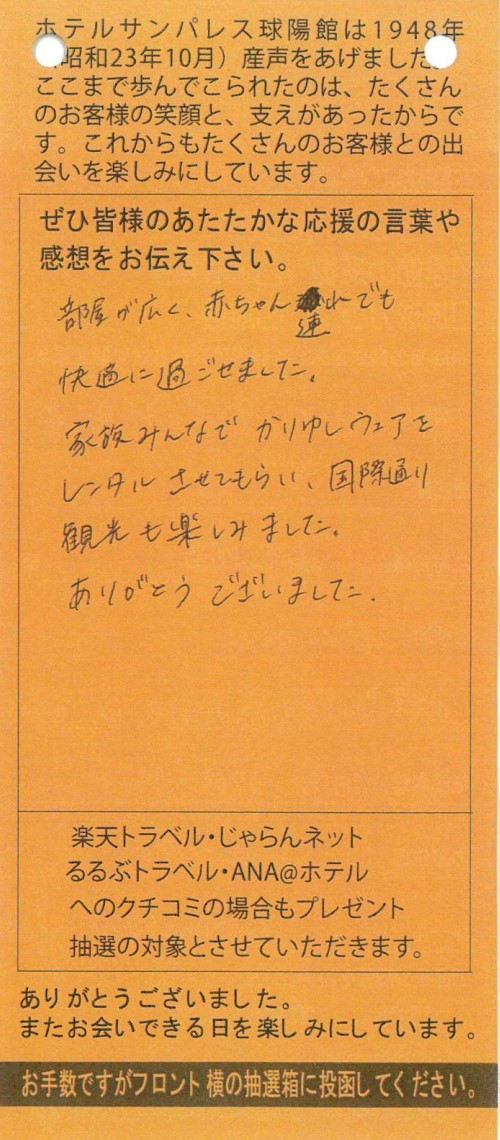 ホテルサンパレス球陽館は1948年
（昭和23年10月）産声をあげました。
ここまで歩んでこられたのは、たくさん
のお客様の笑顔と、支えがあったからで
す。これからもたくさんのお客様との出
会いを楽しみにしています。
ぜひ皆様のあたたかな応援の言葉や
感想をお伝え下さい。
部屋が広く、赤ちゃん連れでも
快適に過ごせました。
家族みんなで かりゆしウェアを
レンタルさせてもらい、国際通り
観光も楽しみました。
ありがとうございました.
楽天トラベル・じゃらんネット
るるぶトラベル・ANA@ホテル
へのクチコミの場合もプレゼント
抽選の対象とさせていただきます。
ありがとうございました。
またお会いできる日を楽しみにしています。
お手数ですがフロント横の抽選箱に投函してください。